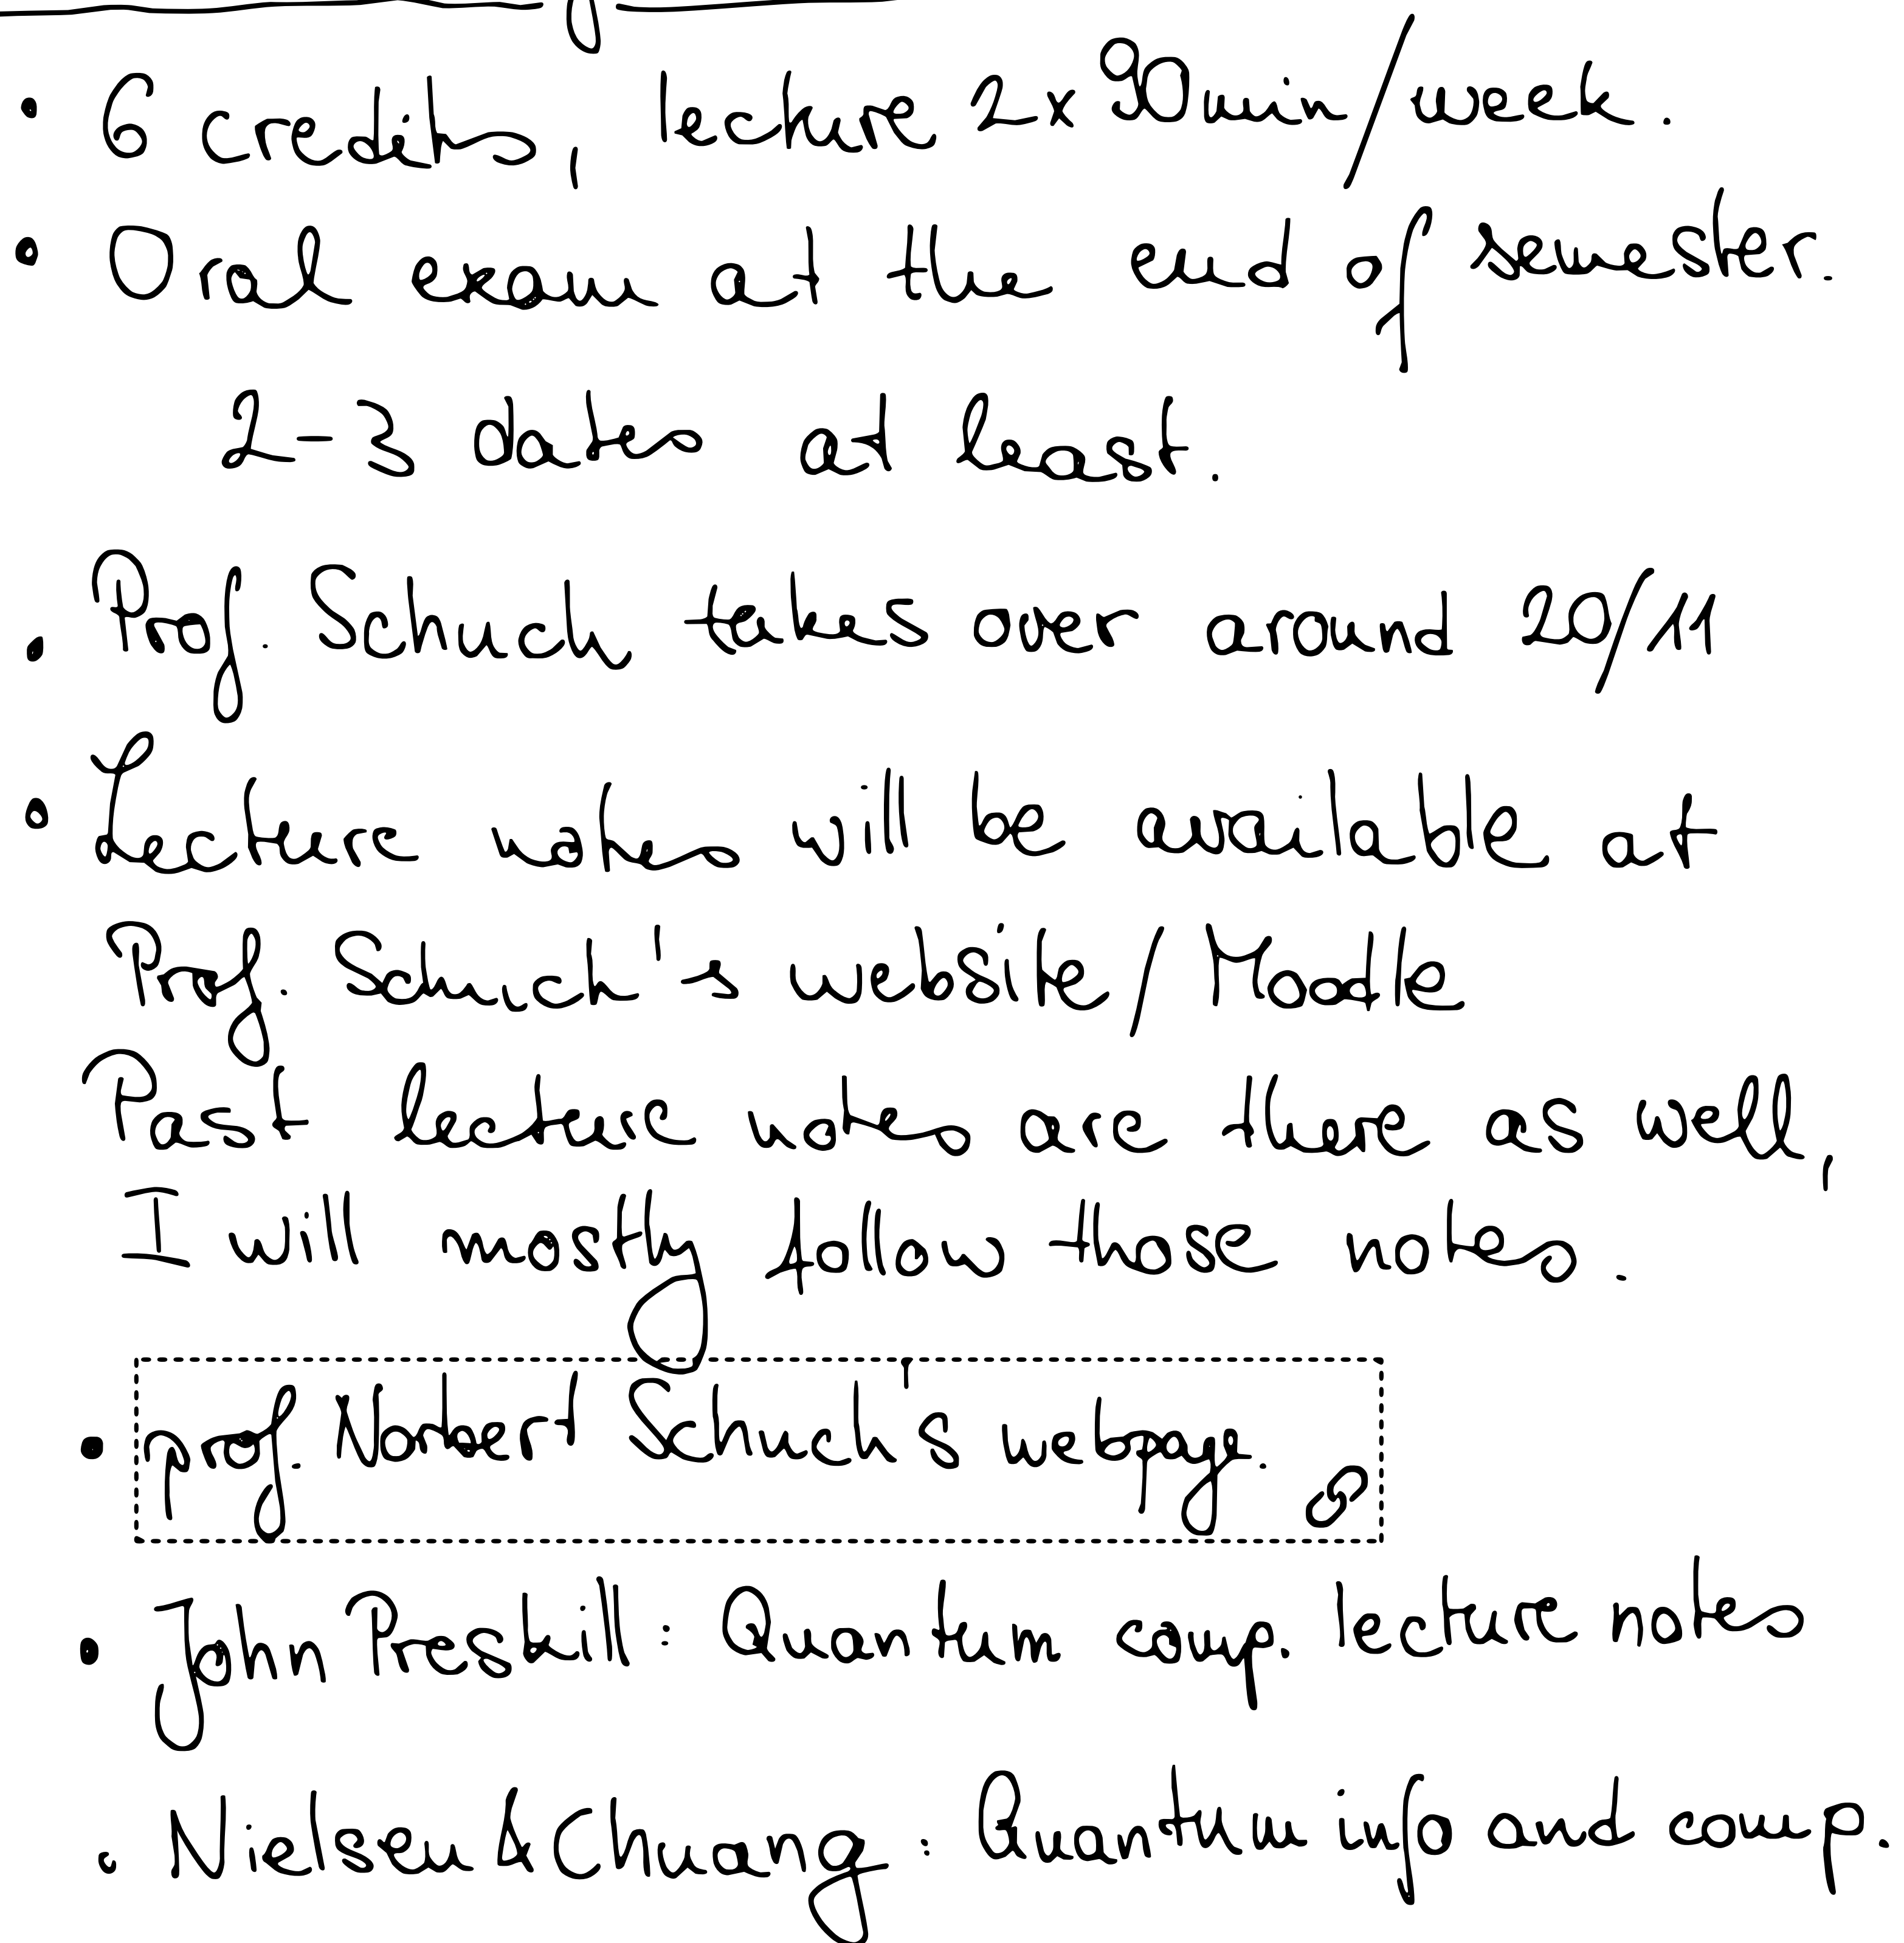 • 6 credits, lecture 2x90min/week.
• Oral exam at the end of semester.
2-3 dates at least.
• Prof. Schuch takes over around 20/11
• Lecture notes will be available at
Prof. Schuch's website/Moodle
Past lecture notes are there as well,
I will mostly follow those notes.
• prof. Norbert Schuch's webpage.
• John Preskill: Quantum comp. lecture notes
• Nielsen & Chuang: Quantum info and comp.